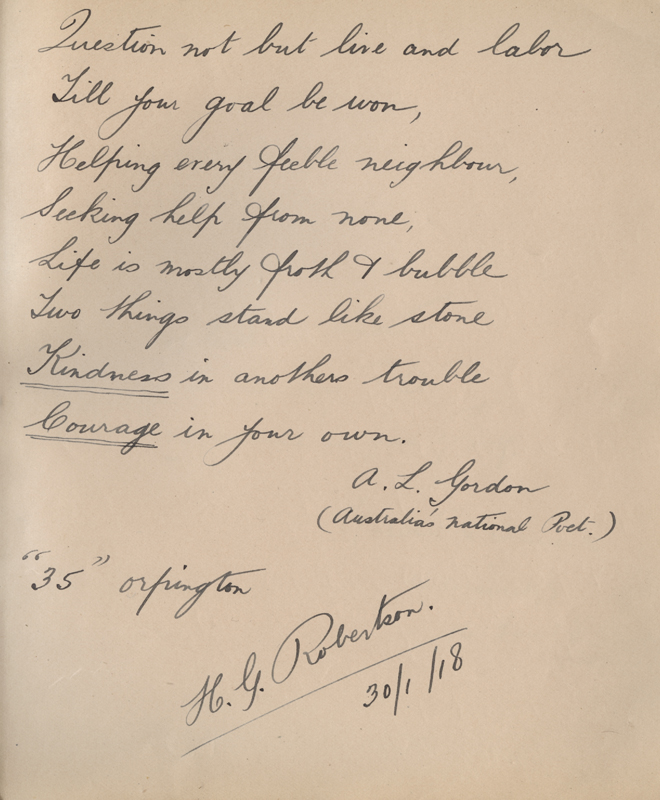 Question not but live and labor
Till your goal be won,
Helping every feeble neighbour,
Seeking help from none,
Life is mostly froth & bubble
Two things stand like stone
Kindness in anothers trouble
Courage in your own.
A. L. Gordon
(Australia's national Poet.)
"35" orpington
H. G. Robertson.
30/1/18